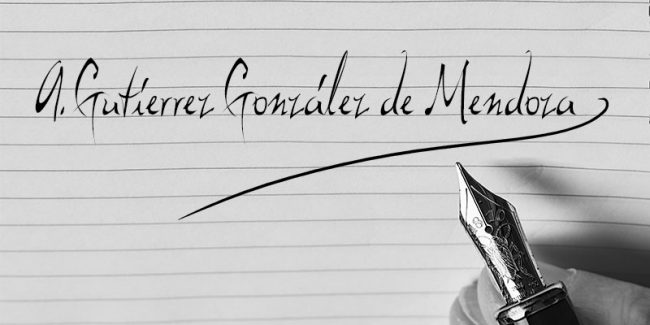 A. Gutíerrez González de Mendoza